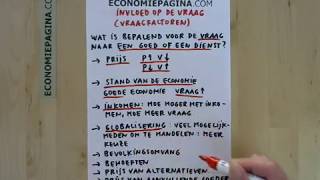 ECONOMIEPAGINA.COM
INVLOED OP DE VRAAG
(VRAAGFACTOREN)
WAT IS BEPALEND VOOR DE VRAAG
NAAR EEN GOED OF EEN DIENST?
→ PRIJS P↑ V↓
P↓ V↑
→ STAND VAN DE ECONOMIE
GOEDE ECONOMIE VRAAG↑
→ INKOMEN: HOE HOGER HET INKO-
MEN, HOE MEER VRAAG
→ GLOBALISERING: VEEL MOGELIJK-
HEDEN OM TE HANDELEN: MEER
KEUZE
→ BEVOLKINGSOMVANG
→ BEHOEFTEN
→ PRIJS VAN ALTERNATIEVEN
→ PRIJS VAN AANVULLENDE GOEDEREN
ECONOMIEPAGINA.COM